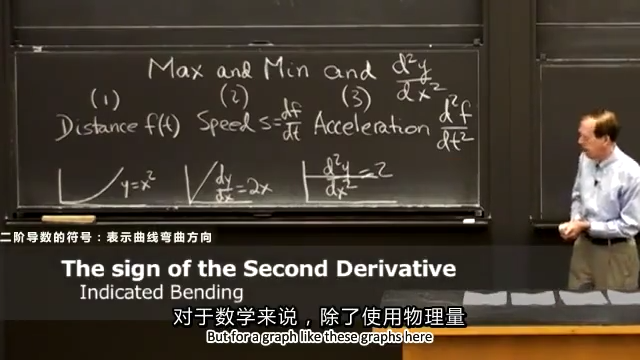 Max and Min and d²y/dx²
(1) (2) (3)
Distance f(t) Speed s=df/dt Acceleration d²f/dt²
y=x² dy/dx=2x d²y/dx²=2
二阶导数的符号：表示曲线弯曲方向
The sign of the Second Derivative
Indicated Bending
对于数学来说，除了使用物理量
But for a graph like these graphs here